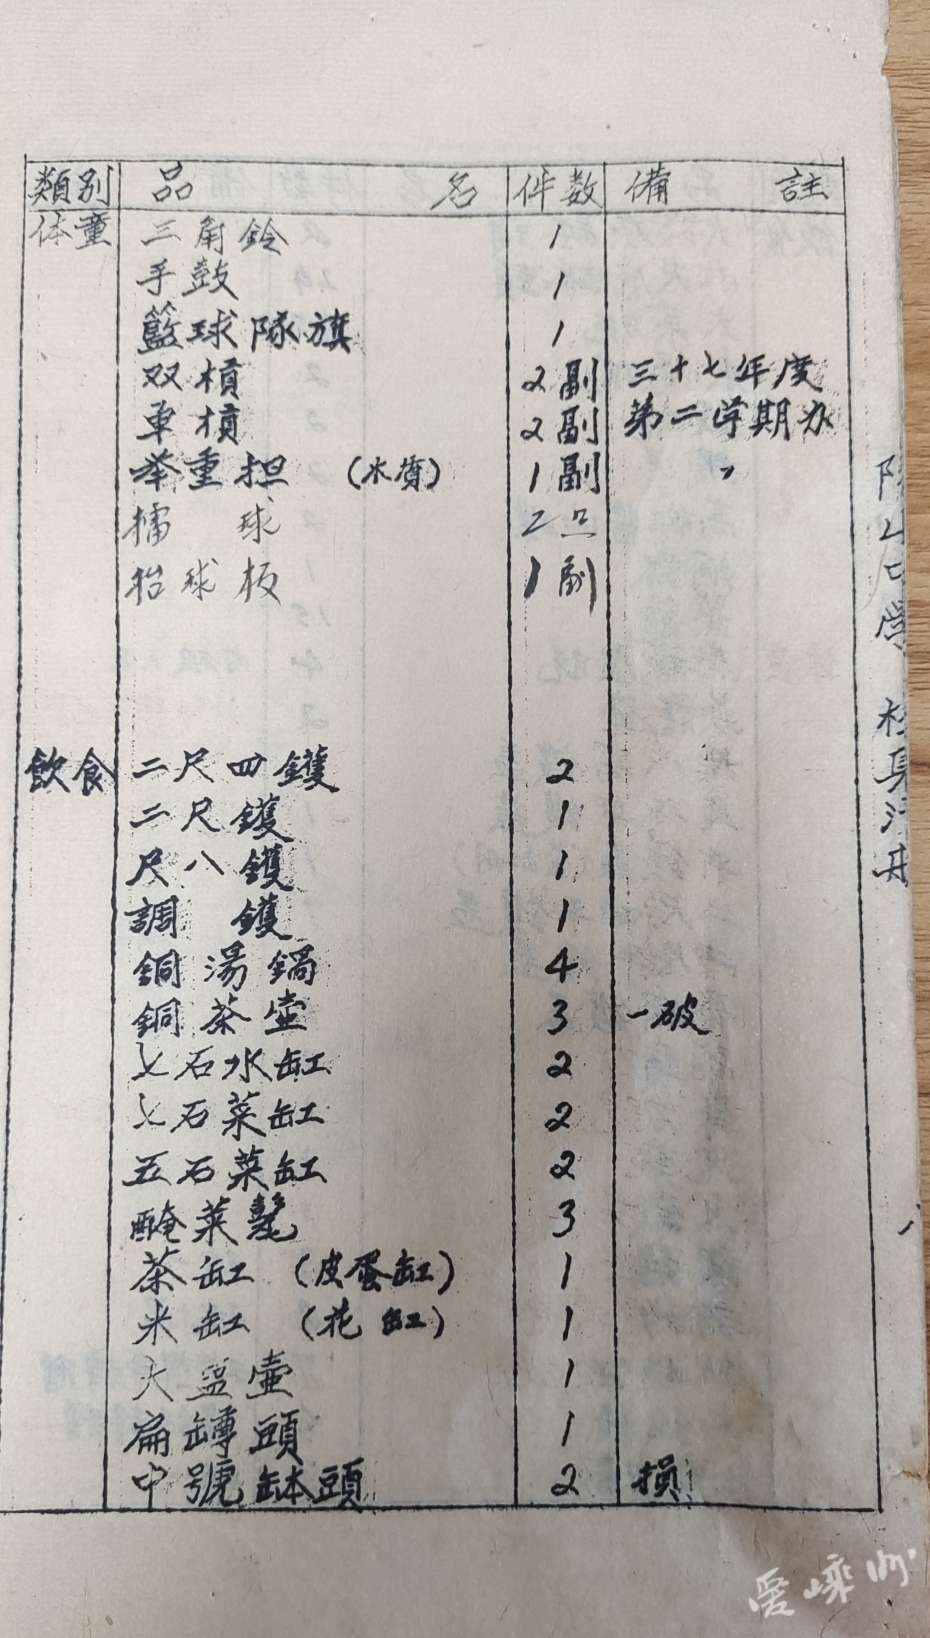 類別 品名 件数 備註
体童 三角鈴 1
手鼓 1
籃球隊旗 1
双槓 2副 三十七年度
单槓 2副 第二学期办
举重担 (木質) 1副 〃
擂球 2只
抬球板 1副
飲食 二尺四鑊 2
二尺鑊 1
尺八鑊 1
調鑊 1
銅湯鍋 4
銅茶壷 3 一破
七石水缸 2
七石菜缸 2
五石菜缸 2
醃菜甏 3
茶缸 (皮蛋缸) 1
米缸 (花缸) 1
大盌壷 1
扁罇頭 1
中號缽頭 2 損
学 校具
愛嵊州